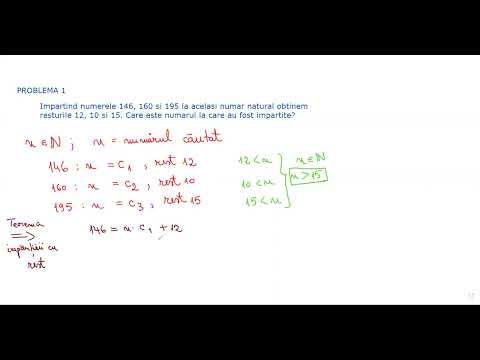 PROBLEMA 1
Impartind numerele 146, 160 si 195 la acelasi numar natural obtinem
resturile 12, 10 si 15. Care este numarul la care au fost impartite?
n ∈ ℕ ; n = numărul căutat
146 : n = c₁ , rest 12
160 : n = c₂ , rest 10
195 : n = c₃ , rest 15
12 < n
10 < n
15 < n
n ∈ ℕ
n > 15
Teorema
⇒
împărțirii cu
rest
146 = n · c₁ + 12